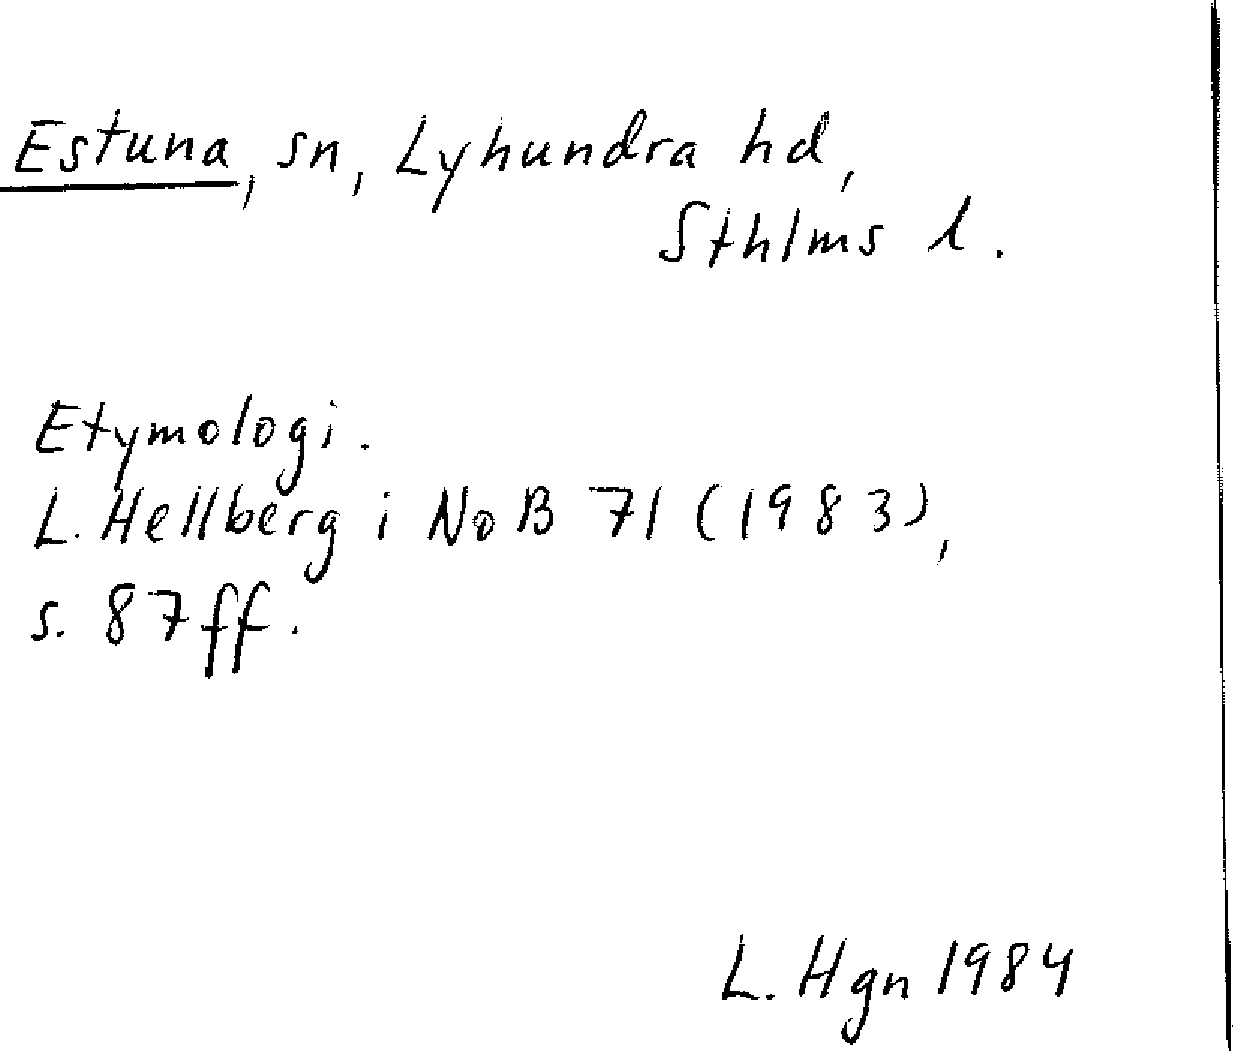 Estuna, sn, Lyhundra hd,
Sthlms l.
Etymologi.
L. Hellberg i NoB 71 (1983),
s. 87ff.
L. Hgn 1984